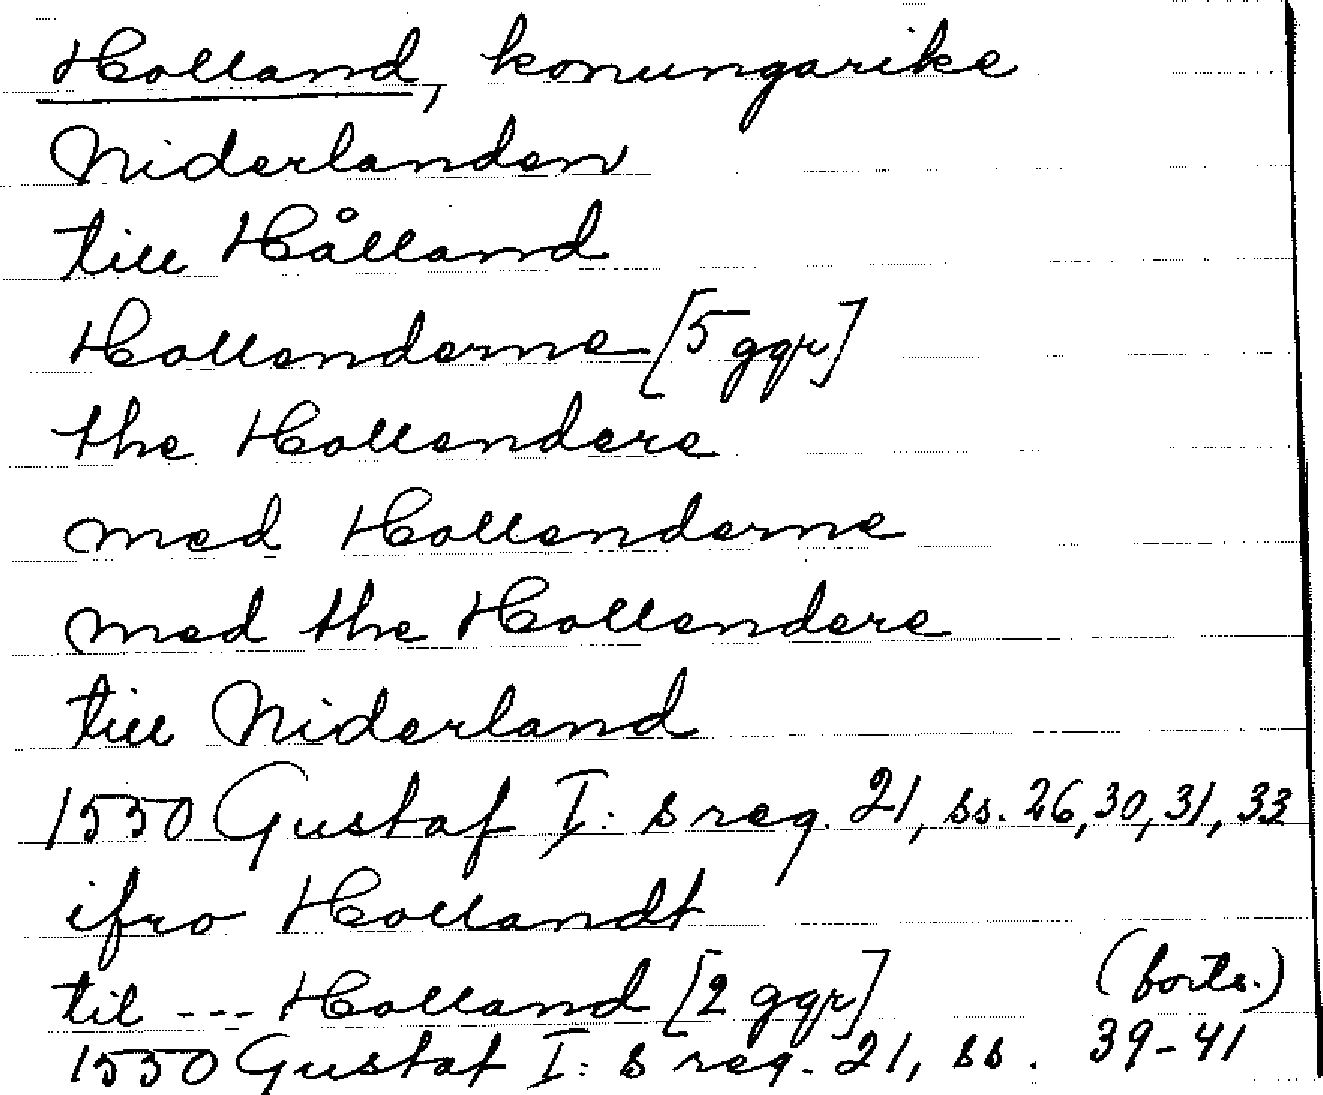 Holland, konungarike
Niderlanden
till Hålland
Hollenderne [5 ggr]
the Hollendere
med Hollenderne
med the Hollendere
till Niderland
1550 Gustaf I: s reg. 21, ss. 26, 30, 31, 33
ifro Hollandt
til --- Holland [2 ggr]
(forts.)
1550 Gustaf I: s reg. 21, ss. 39-41